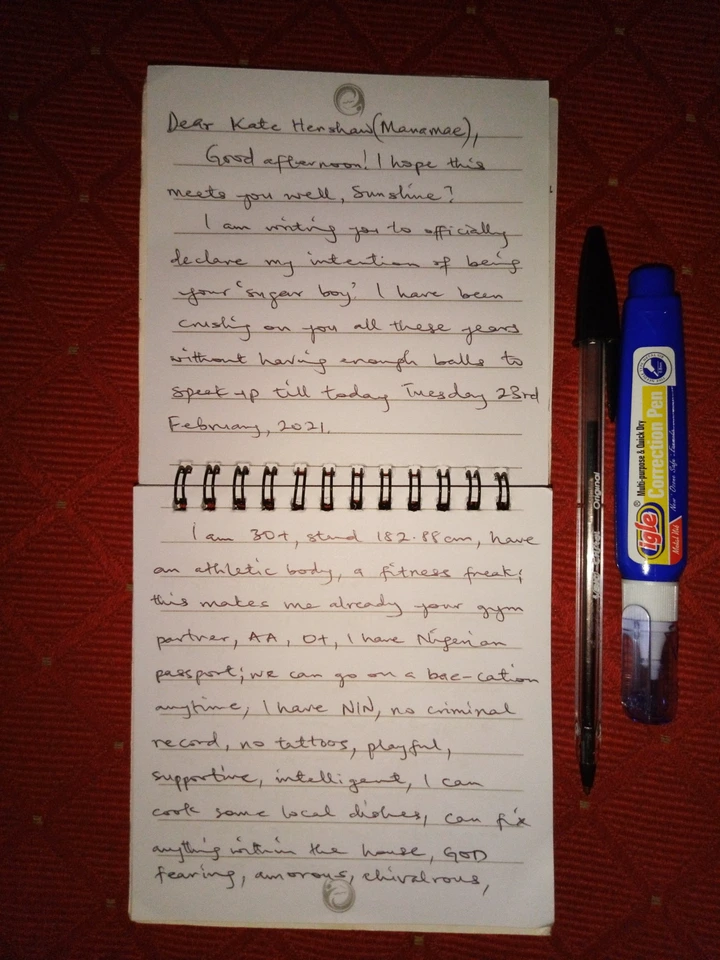 Dear Kate Henshaw (Manamae),
Good afternoon! I hope this
meets you well, Sunshine?
I am writing you to officially
declare my intention of being
your 'sugar boy'. I have been
crushing on you all these years
without having enough balls to
speak up till today Tuesday 23rd
February, 2021.
I am 30+, stand 182.88cm, have
an athletic body, a fitness freak;
this makes me already your gym
partner, AA, O+, I have Nigerian
passport; we can go on a bae-cation
anytime, I have NIN, no criminal
record, no tattoos, playful,
supportive, intelligent, I can
cook some local dishes, can fix
anything within the house, GOD
fearing, amorous, chivalrous,
Original
igle®
Multi-purpose & Quick Dry
Correction Pen